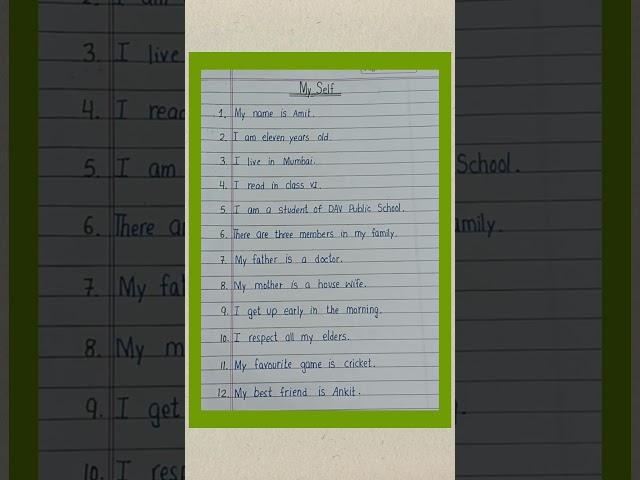 My Self
1. My name is Amit.
2. I am eleven years old.
3. I live in Mumbai.
4. I read in class VI.
5. I am a student of DAV Public School.
6. There are three members in my family.
7. My father is a doctor.
8. My mother is a house wife.
9. I get up early in the morning.
10. I respect all my elders.
11. My favourite game is cricket.
12. My best friend is Ankit.